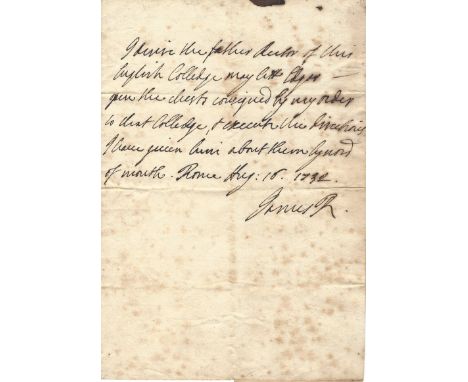 I desire the father Rector of this
English Colledge may lett Edgar
open the chests consigned by my order
to that Colledge, & execute the directions
I have given him about them by word
of mouth. Rome Aug: 18. 1732.
James R.